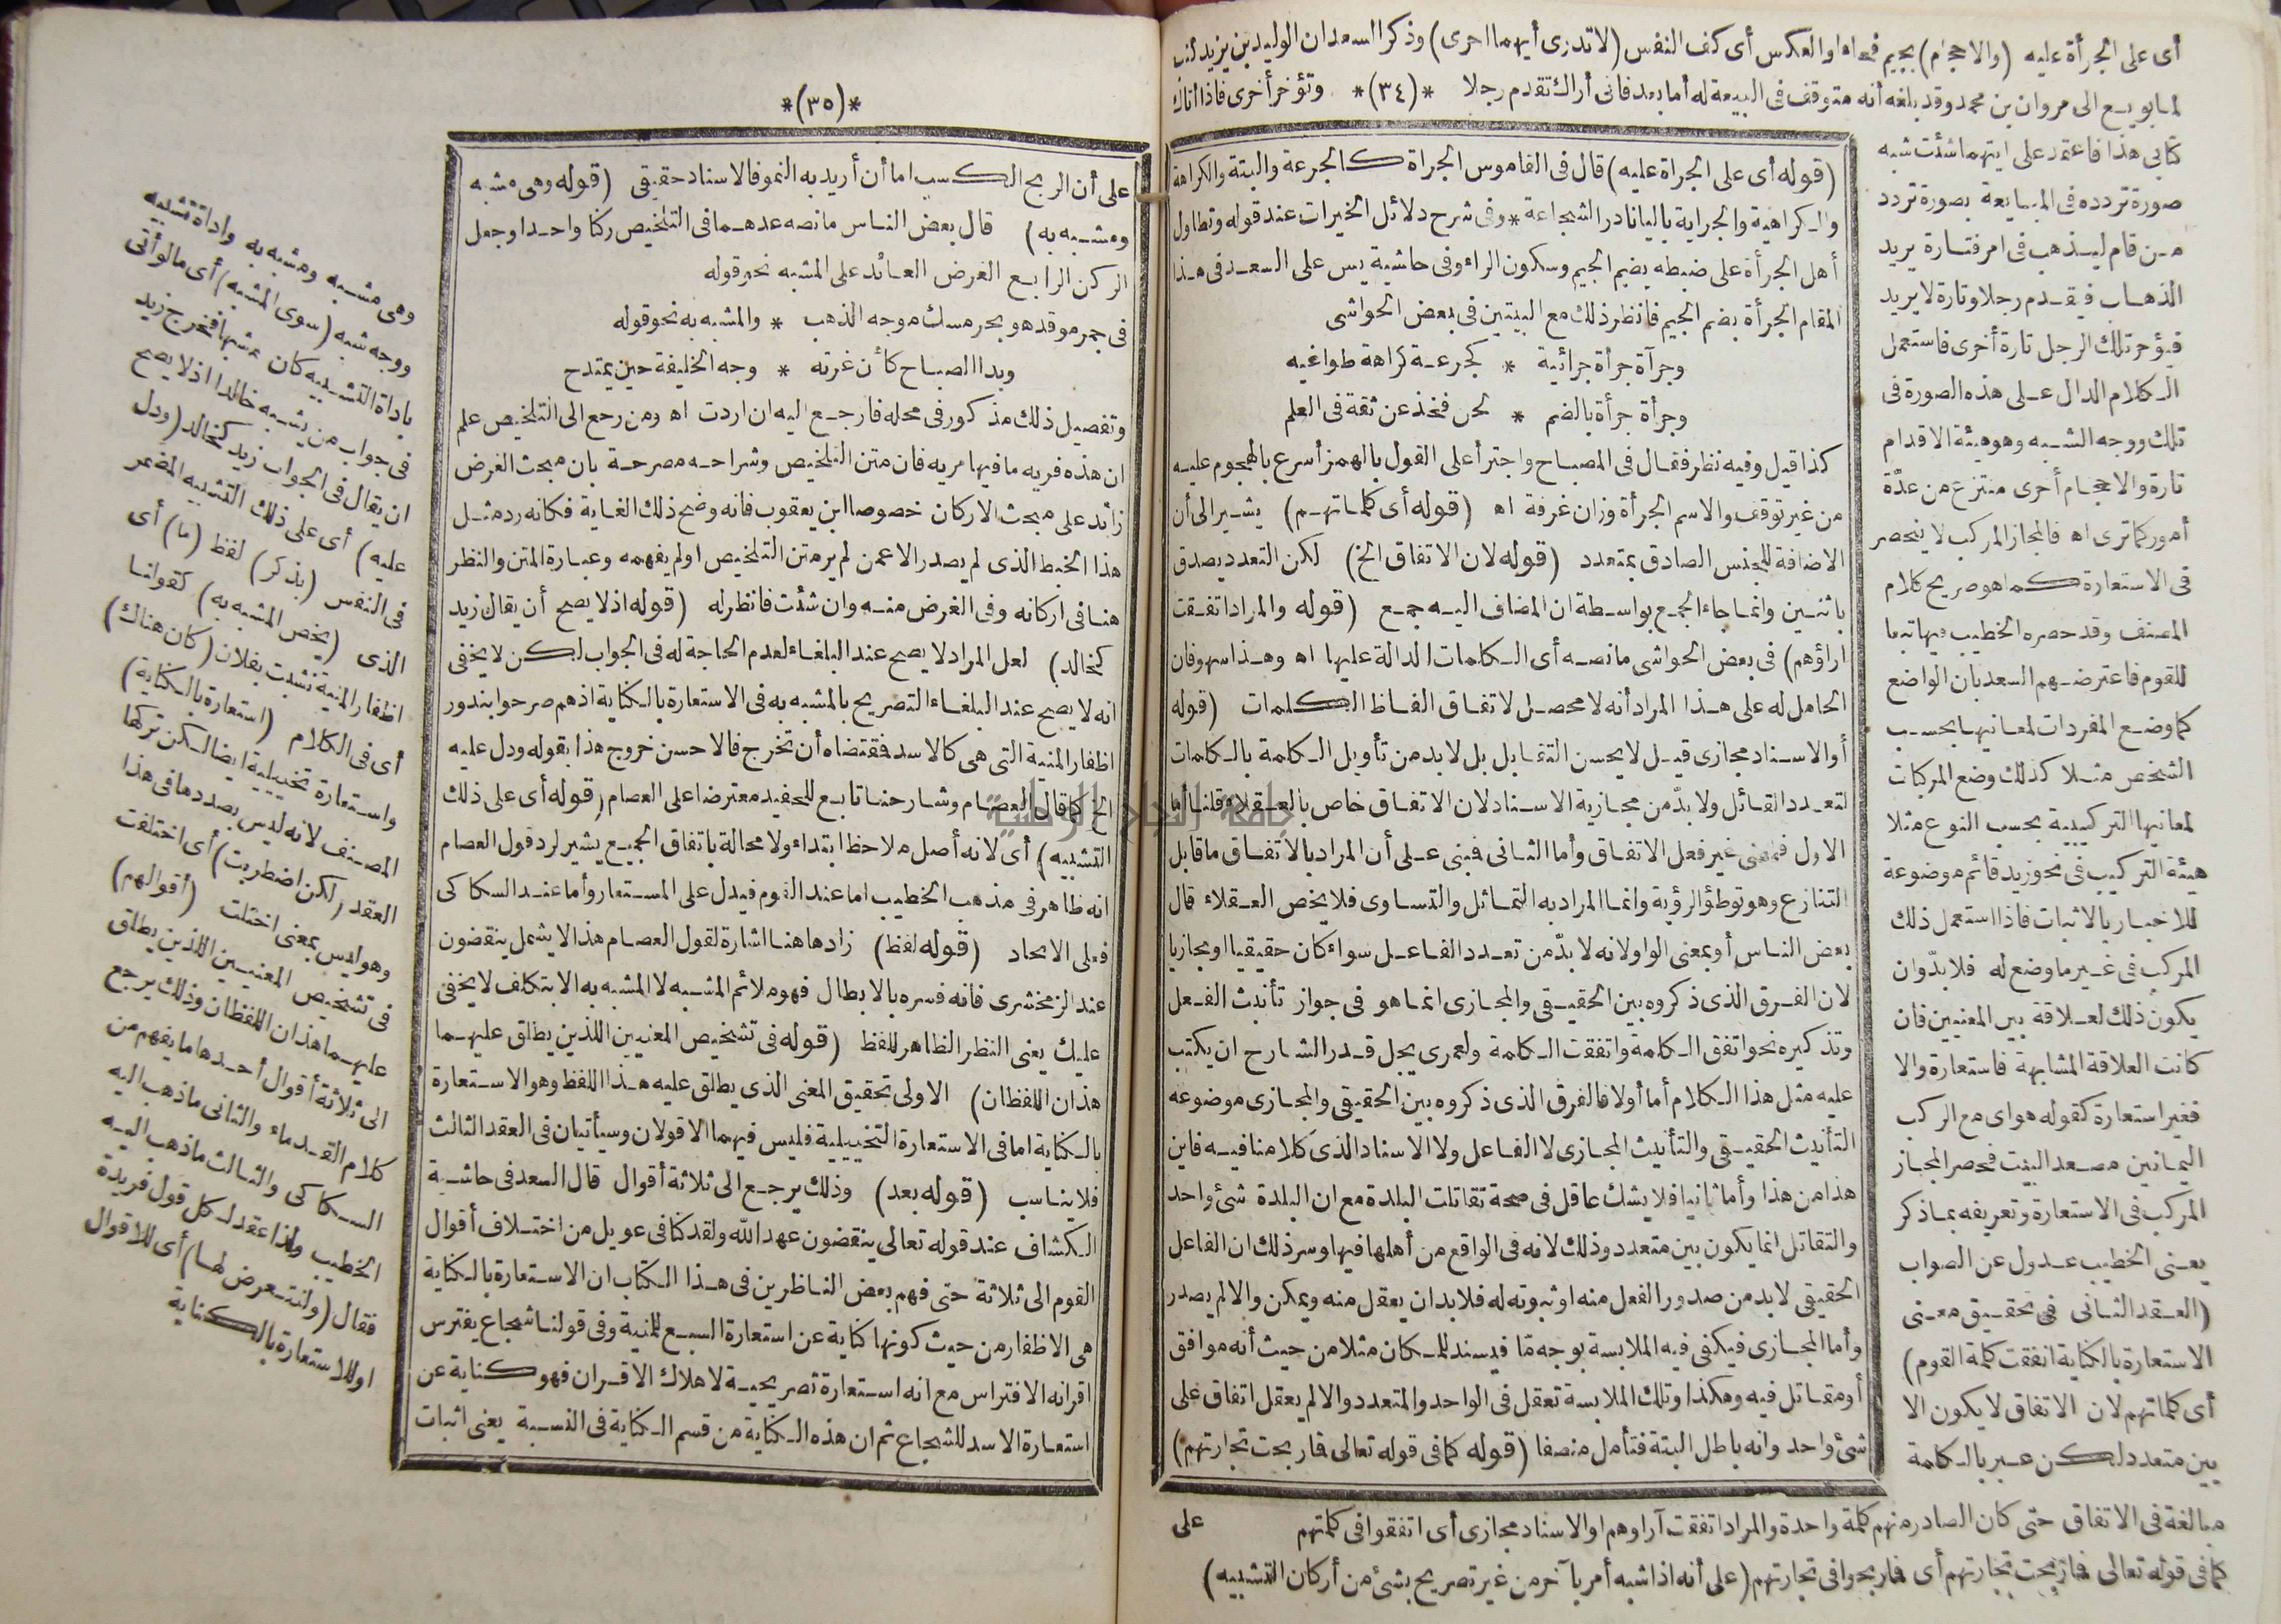 أى على الجرأة عليه (والاحجام) بجيم فحاء او العكس أى كف النفس (لا تدرى أيهما احرى) وذكر السعد ان الوليد بن يزيد كتب
لما بويع الى مروان بن محمد وقد بلغه أنه متوقف فى البيعة له أما بعد فانى أراك تقدم رجلا *(٣٤)* وتؤخر أخرى فاذا أتاك
كتابى هذا فاعتمد على ايتهما شئت شبه
صورة تردده فى المبايعة بصورة تردد
من قام ليذهب فى امر فتارة يريد
الذهاب فيقدم رجلا وتارة لا يريد
فيؤخر تلك الرجل تارة أخرى فاستعمل
الكلام الدال على هذه الصورة فى
تلك ووجه الشبه وهو هيئة الاقدام
تارة والاحجام أخرى منتزع من عدّة
أمور كما ترى اه فالمجاز المركب لا ينحصر
فى الاستعارة كما هو صريح كلام
المصنف وقد حصره الخطيب فيها تبعا
للقوم فاعترضهم السعد بان الواضع
كما وضع المفردات لمعانيها بحسب
الشخص مثلا كذلك وضع المركبات
لمعانيها التركيبية بحسب النوع مثلا
هيئة التركيب فى نحو زيد قائم موضوعة
للاخبار بالاثبات فاذا استعمل ذلك
المركب فى غير ما وضع له فلا بدّ وان
يكون ذلك لعلاقة بين المعنيين فان
كانت العلاقة المشابهة فاستعارة والا
فغير استعارة كقوله هواى مع الركب
اليمانين مصعد البيت فحصر المجاز
المركب فى الاستعارة وتعريفه بما ذكر
يعنى الخطيب عدول عن الصواب
(العقد الثانى فى تحقيق معنى
الاستعارة بالكناية اتفقت كلمة القوم)
أى كلماتهم لان الاتفاق لا يكون الا
بين متعدد لكن عبر بالكلمة
مبالغة فى الاتفاق حتى كان الصادر منهم كلمة واحدة والمراد اتفقت آراوهم او الاسناد مجازى أى اتفقوا فى كلمتهم
كما فى قوله تعالى فما ربحت تجارتهم أى فما ربحوا فى تجارتهم (على أنه اذا شبه أمر بآخر من غير تصريح بشئ من أركان التشبيه)
(قوله أى على الجراة عليه) قال فى القاموس الجراة كالجرعة والبتة والكراهة
والكراهية والجراية بالياء نادر الشجاعة * وفى شرح دلائل الخيرات عند قوله وتطاول
أهل الجرأة على ضبطه بضم الجيم وسكون الراء وفى حاشية يس على السعد فى هذا
المقام الجرأة بضم الجيم فانظر ذلك مع البيتين فى بعض الحواشى
وجرآة جرأة جرائية * كجرعة كراهة طواغيه
وجرأة جرأة بالضم * لحن فخذ عن ثقة فى العلم
كذا قيل وفيه نظر فقال فى المصباح واجترأ على القول بالهمز أسرع بالهجوم عليه
من غير توقف والاسم الجرأة وزان غرفة اه (قوله أى كلماتهم) يشير الى أن
الاضافة للجنس الصادق بمتعدد (قوله لان الاتفاق الخ) لكن التعدد يصدق
باثنين وانما جاء الجمع بواسطة ان المضاف اليه جمع (قوله والمراد اتفقت
اراؤهم) فى بعض الحواشى ما نصه أى الكلمات الدالة عليها اه وهذا سهو فان
الحامل له على هذا المراد أنه لا محصل لاتفاق الفاظ الكلمات (قوله
أو الاسناد مجازى قيل لا يحسن التقابل بل لا بد من تأويل الكلمة بالكلمات
لتعدد القائل ولا بدّ من مجازية الاسناد لان الاتفاق خاص بالعقلاء قلنا أما
الاول فمعنى غير فعل الاتفاق وأما الثانى فبنى على أن المراد بالاتفاق ما قابل
التنازع وهو توطؤ الرؤية وانما المراد به التماثل والتساوى فلا يخص العقلاء قال
بعض الناس أو بمعنى الواو لانه لا بدّ من تعدد الفاعل سواء كان حقيقيا او مجازيا
لان الفرق الذى ذكروه بين الحقيقى والمجازى انما هو فى جواز تأنيث الفعل
وتذكيره نحو اتفق الكلمة واتفقت الكلمة ولعمرى يجل قدر الشارح ان يكتب
عليه مثل هذا الكلام أما أولا فالفرق الذى ذكروه بين الحقيقى والمجازى موضوعه
التأنيث الحقيقى والتأنيث المجازى لا الفاعل ولا الاسناد الذى كلامنا فيه فاين
هذا من هذا وأما ثانيا فلا يشك عاقل فى صحة تقاتلت البلدة مع ان البلدة شئ واحد
والتقاتل انما يكون بين متعدد وذلك لانه فى الواقع من أهلها فيها وسر ذلك ان الفاعل
الحقيقى لا بد من صدور الفعل منه او ثبوته له فلا بد ان يعقل منه ويمكن والا لم يصدر
وأما المجازى فيكفى فيه الملابسة بوجه مّا فيسند للمكان مثلا من حيث أنه موافق
أو مقاتل فيه وهكذا وتلك الملابسة تعقل فى الواحد والمتعدد والا لم يعقل اتفاق على
شئ واحد وانه باطل البتة فتأمل منصفا (قوله كما فى قوله تعالى فما ربحت تجارتهم)
على
*(٣٥)*
على أن الربح الكسب اما أن أريد به النمو فالاسناد حقيقى (قوله وهى مشبه
ومشبه به) قال بعض الناس ما نصه عدهما فى التلخيص ركنا واحدا وجعل
الركن الرابع الغرض العائد على المشبه نحو قوله
فى جمر موقد هو بحر مسك موجه الذهب * والمشبه به نحو قوله
وبدا الصباح كأن غرته * وجه الخليفة حين يمتدح
وتفصيل ذلك مذكور فى محله فارجع اليه ان اردت اه ومن رجع الى التلخيص علم
ان هذه فريه ما فيها مريه فان متن التلخيص وشراحه مصرحة بان مبحث الغرض
زائد على مبحث الاركان خصوصا ابن يعقوب فانه وضح ذلك الغاية فكانه رد مثل
هذا الخبط الذى لم يصدر الا عمن لم ير متن التلخيص او لم يفهمه وعبارة المتن والنظر
هنا فى اركانه وفى الغرض منه وان شئت فانظر له (قوله اذ لا يصح أن يقال زيد
كخالد) لعل المراد لا يصح عند البلغاء لعدم الحاجة له فى الجواب لكن لا يخفى
انه لا يصح عند البلغاء التصريح بالمشبه به فى الاستعارة بالكناية اذ هم صرحوا بندور
اظفار المنية التى هى كالاسد فقتضاه أن تخرج فالاحسن خروج هذا بقوله ودل عليه
الخ كما قال العصام وشارحنا تابع للحفيد معترضا على العصام (قوله أى على ذلك
التشبيه) أى لانه أصل ملاحظ ابتداء ولا محالة باتفاق الجميع يشير لرد قول العصام
انه ظاهر فى مذهب الخطيب اما عند القوم فيدل على المستعار وأما عند السكاكى
فعلى الاتحاد (قوله لفظ) زادها هنا اشارة لقول العصام هذا لا يشمل ينقضون
عند الزمخشرى فانه فسره بالابطال فهو ملائم المشبه لا المشبه به الا بتكلف لا يخفى
عليك يعنى النظر الظاهر للفظ (قوله فى تشخيص المعنيين اللذين يطلق عليهما
هذان اللفظان) الاولى تحقيق المعنى الذى يطلق عليه هذا اللفظ وهو الاستعارة
بالكناية اما فى الاستعارة التخييلية فليس فيهما الا قولان وسيأتيان فى العقد الثالث
فلا يناسب (قوله بعد) وذلك يرجع الى ثلاثة أقوال قال السعد فى حاشية
الكشاف عند قوله تعالى ينقضون عهد الله ولقد كنا فى عويل من اختلاف أقوال
القوم الى ثلاثة حتى فهم بعض الناظرين فى هذا الكتاب ان الاستعارة بالكناية
هى الاظفار من حيث كونها كناية عن استعارة السبع للمنية وفى قولنا شجاع يفترس
اقرانه الافتراس مع انه استعارة تصريحية لاهلاك الاقران فهو كناية عن
استعارة الاسد للشجاع ثم ان هذه الكناية من قسم الكناية فى النسبة يعنى اثبات
وهى مشبه ومشبه به واداة تشبيه
ووجه شبه (سوى المشبه) أى ما لو أتى
باداة التشبيه كان مشبها فخرج زيد
فى جواب من يشبه خالدا اذ لا يصح
ان يقال فى الجواب زيد كخالد (ودل
عليه) أى على ذلك التشبيه المضمر
فى النفس (بذكر) لفظ (ما) أى
الذى (يخص المشبه به) كقولنا
اظفار المنية نشبت بفلان (كان هناك)
أى فى الكلام (استعارة بالكناية)
واستعارة تخييلية ايضا لكن تركها
المصنف لانه ليس بصددها فى هذا
العقد (لكن اضطربت) أى اختلفت
وهو ليس بمعنى اختلت (أقوالهم)
فى تشخيص المعنيين اللذين يطلق
عليهما هذان اللفظان وذلك يرجع
الى ثلاثة أقوال أحدها ما يفهم من
كلام القدماء والثانى ما ذهب اليه
السكاكى والثالث ما ذهب اليه
الخطيب ولذا عقد لكل قول فريدة
فقال (ولنتعرض لها) أى للاقوال
او للاستعارة بالكناية
جامعة النجاح الوطنية